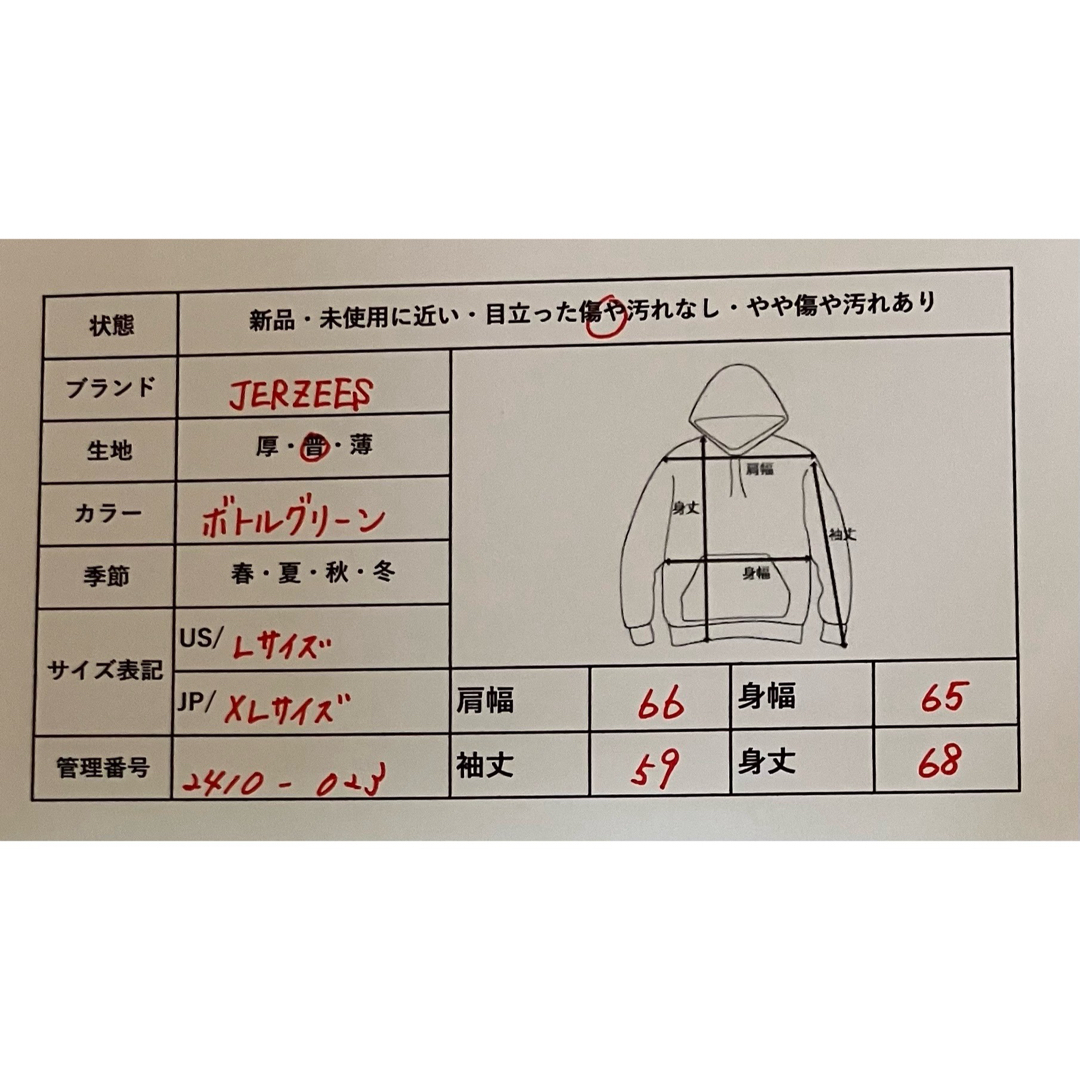 状態 新品・未使用に近い・目立った傷や汚れなし・やや傷や汚れあり
ブランド JERZEES
生地 厚・普・薄
カラー ボトルグリーン
季節 春・夏・秋・冬
肩幅
身丈
袖丈
身幅
サイズ表記 US/ Lサイズ
JP/ XLサイズ 肩幅 66 身幅 65
管理番号 2410-023 袖丈 59 身丈 68